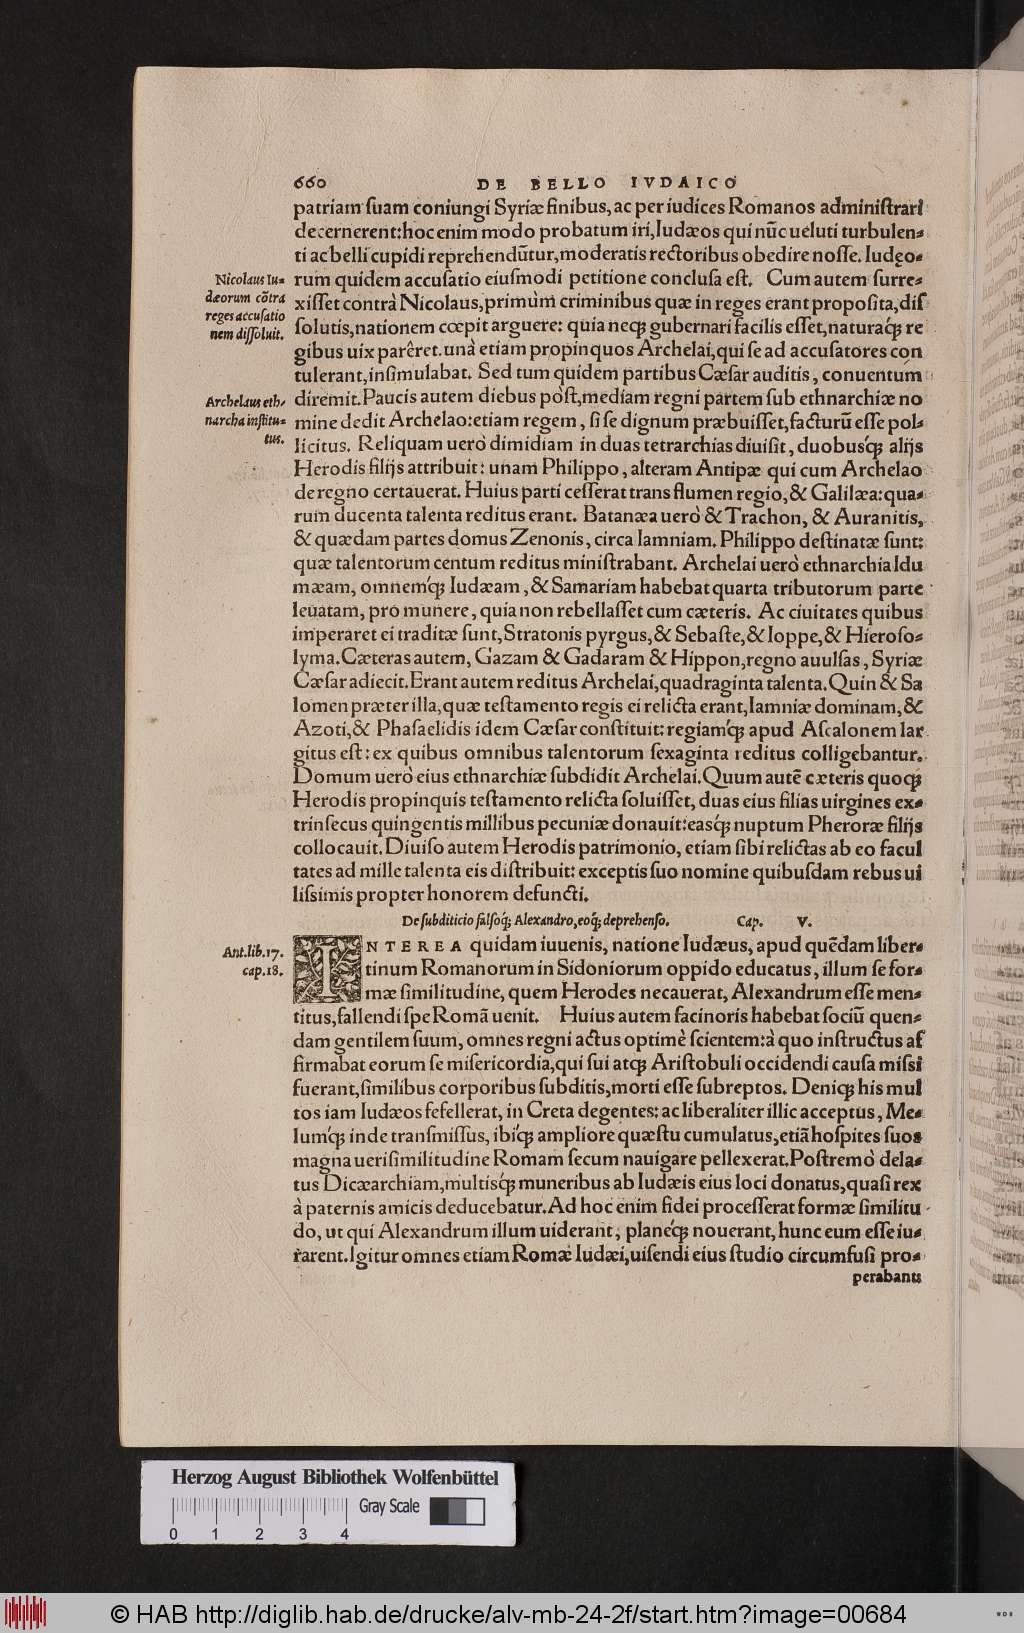 660 DE BELLO IVDAICO
patriam ſuam coniungi Syriæ finibus, ac per iudices Romanos adminiſtrari
decernerent: hoc enim modo probatum iri, Iudæos qui nūc ueluti turbulen⸗
ti ac belli cupidi reprehendūtur, moderatis rectoribus obedire noſſe. Iudęo⸗
Nicolaus Iu⸗
dæorum cōtra
reges accuſatio
nem diſſoluit.
rum quidem accuſatio eiuſmodi petitione concluſa eſt. Cum autem ſurre⸗
xiſſet contrà Nicolaus, primùm criminibus quæ in reges erant propoſita, diſ
ſolutis, nationem cœpit arguere: quia neqꝫ gubernari facilis eſſet, naturaq́ꝫ re
gibus uix parêret. unà etiam propinquos Archelai, qui ſe ad accuſatores con
tulerant, inſimulabat. Sed tum quidem partibus Cæſar auditis, conuentum
Archelaus eth⸗
narcha inſtitu⸗
tus.
diremit. Paucis autem diebus pòſt, mediam regni partem ſub ethnarchiæ no
mine dedit Archelao: etiam regem, ſi ſe dignum præbuiſſet, facturū eſſe pol⸗
licitus. Reliquam uerò dimidiam in duas tetrarchias diuiſit, duobusq́ꝫ alijs
Herodis filijs attribuit: unam Philippo, alteram Antipæ qui cum Archelao
de regno certauerat. Huius parti ceſſerat trans flumen regio, & Galilæa: qua⸗
rum ducenta talenta reditus erant. Batanæa uerò & Trachon, & Auranitis,
& quædam partes domus Zenonis, circa Iamniam. Philippo deſtinatæ ſunt:
quæ talentorum centum reditus miniſtrabant. Archelai uerò ethnarchia Idu
mæam, omnemq́ꝫ Iudæam, & Samariam habebat quarta tributorum parte
leuatam, pro munere, quia non rebellaſſet cum cæteris. Ac ciuitates quibus
imperaret ei traditæ ſunt, Stratonis pyrgus, & Sebaſte, & Ioppe, & Hieroſo⸗
lyma. Cæteras autem, Gazam & Gadaram & Hippon, regno auulſas, Syriæ
Cæſar adiecit. Erant autem reditus Archelai, quadraginta talenta. Quin & Sa
lomen præter illa, quæ teſtamento regis ei relicta erant, Iamniæ dominam, &
Azoti, & Phaſaelidis idem Cæſar conſtituit: regiamq́ꝫ apud Aſcalonem lar
gitus eſt: ex quibus omnibus talentorum ſexaginta reditus colligebantur.
Domum uerò eius ethnarchiæ ſubdidit Archelai. Quum autē cæteris quoqꝫ
Herodis propinquis teſtamento relicta ſoluiſſet, duas eius filias uirgines ex⸗
trinſecus quingentis millibus pecuniæ donauit: easq́ꝫ nuptum Pheroræ filijs
collocauit. Diuiſo autem Herodis patrimonio, etiam ſibi relictas ab eo facul
tates ad mille talenta eis diſtribuit: exceptis ſuo nomine quibuſdam rebus ui
liſsimis propter honorem defuncti.
De ſubditicio falſoq́ꝫ Alexandro, eoq́ꝫ deprehenſo. Cap. V.
Ant. lib. 17.
cap. 18.
INTEREA quidam iuuenis, natione Iudæus, apud quēdam liber⸗
tinum Romanorum in Sidoniorum oppido educatus, illum ſe for⸗
mæ ſimilitudine, quem Herodes necauerat, Alexandrum eſſe men⸗
titus, fallendi ſpe Romā uenit. Huius autem facinoris habebat ſociū quen⸗
dam gentilem ſuum, omnes regni actus optimè ſcientem: à quo inſtructus aſ
firmabat eorum ſe miſericordia, qui ſui atqꝫ Ariſtobuli occidendi cauſa miſsi
fuerant, ſimilibus corporibus ſubditis, morti eſſe ſubreptos. Deniqꝫ his mul
tos iam Iudæos fefellerat, in Creta degentes: ac liberaliter illic acceptus, Me⸗
lumq́ꝫ inde tranſmiſſus, ibiq́ꝫ ampliore quæſtu cumulatus, etiā hoſpites ſuos
magna ueriſimilitudine Romam ſecum nauigare pellexerat. Poſtremò dela⸗
tus Dicæarchiam, multisq́ꝫ muneribus ab Iudæis eius loci donatus, quaſi rex
à paternis amicis deducebatur. Ad hoc enim fidei proceſſerat formæ ſimilitu
do, ut qui Alexandrum illum uiderant, planeq́ꝫ nouerant, hunc eum eſſe iu⸗
rarent. Igitur omnes etiam Romæ Iudæi, uiſendi eius ſtudio circumfuſi pro⸗
perabant:
Herzog August Bibliothek Wolfenbüttel
Gray Scale
0 1 2 3 4
© HAB http://diglib.hab.de/drucke/alv-mb-24-2f/start.htm?image=00684